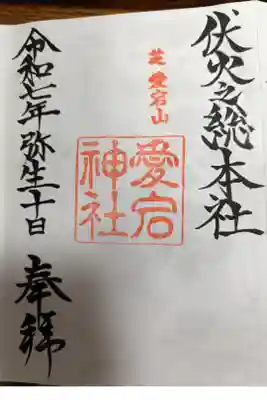 伏火之総本社
芝 愛宕山
愛宕
神社
奉拝
令和七年弥生十日